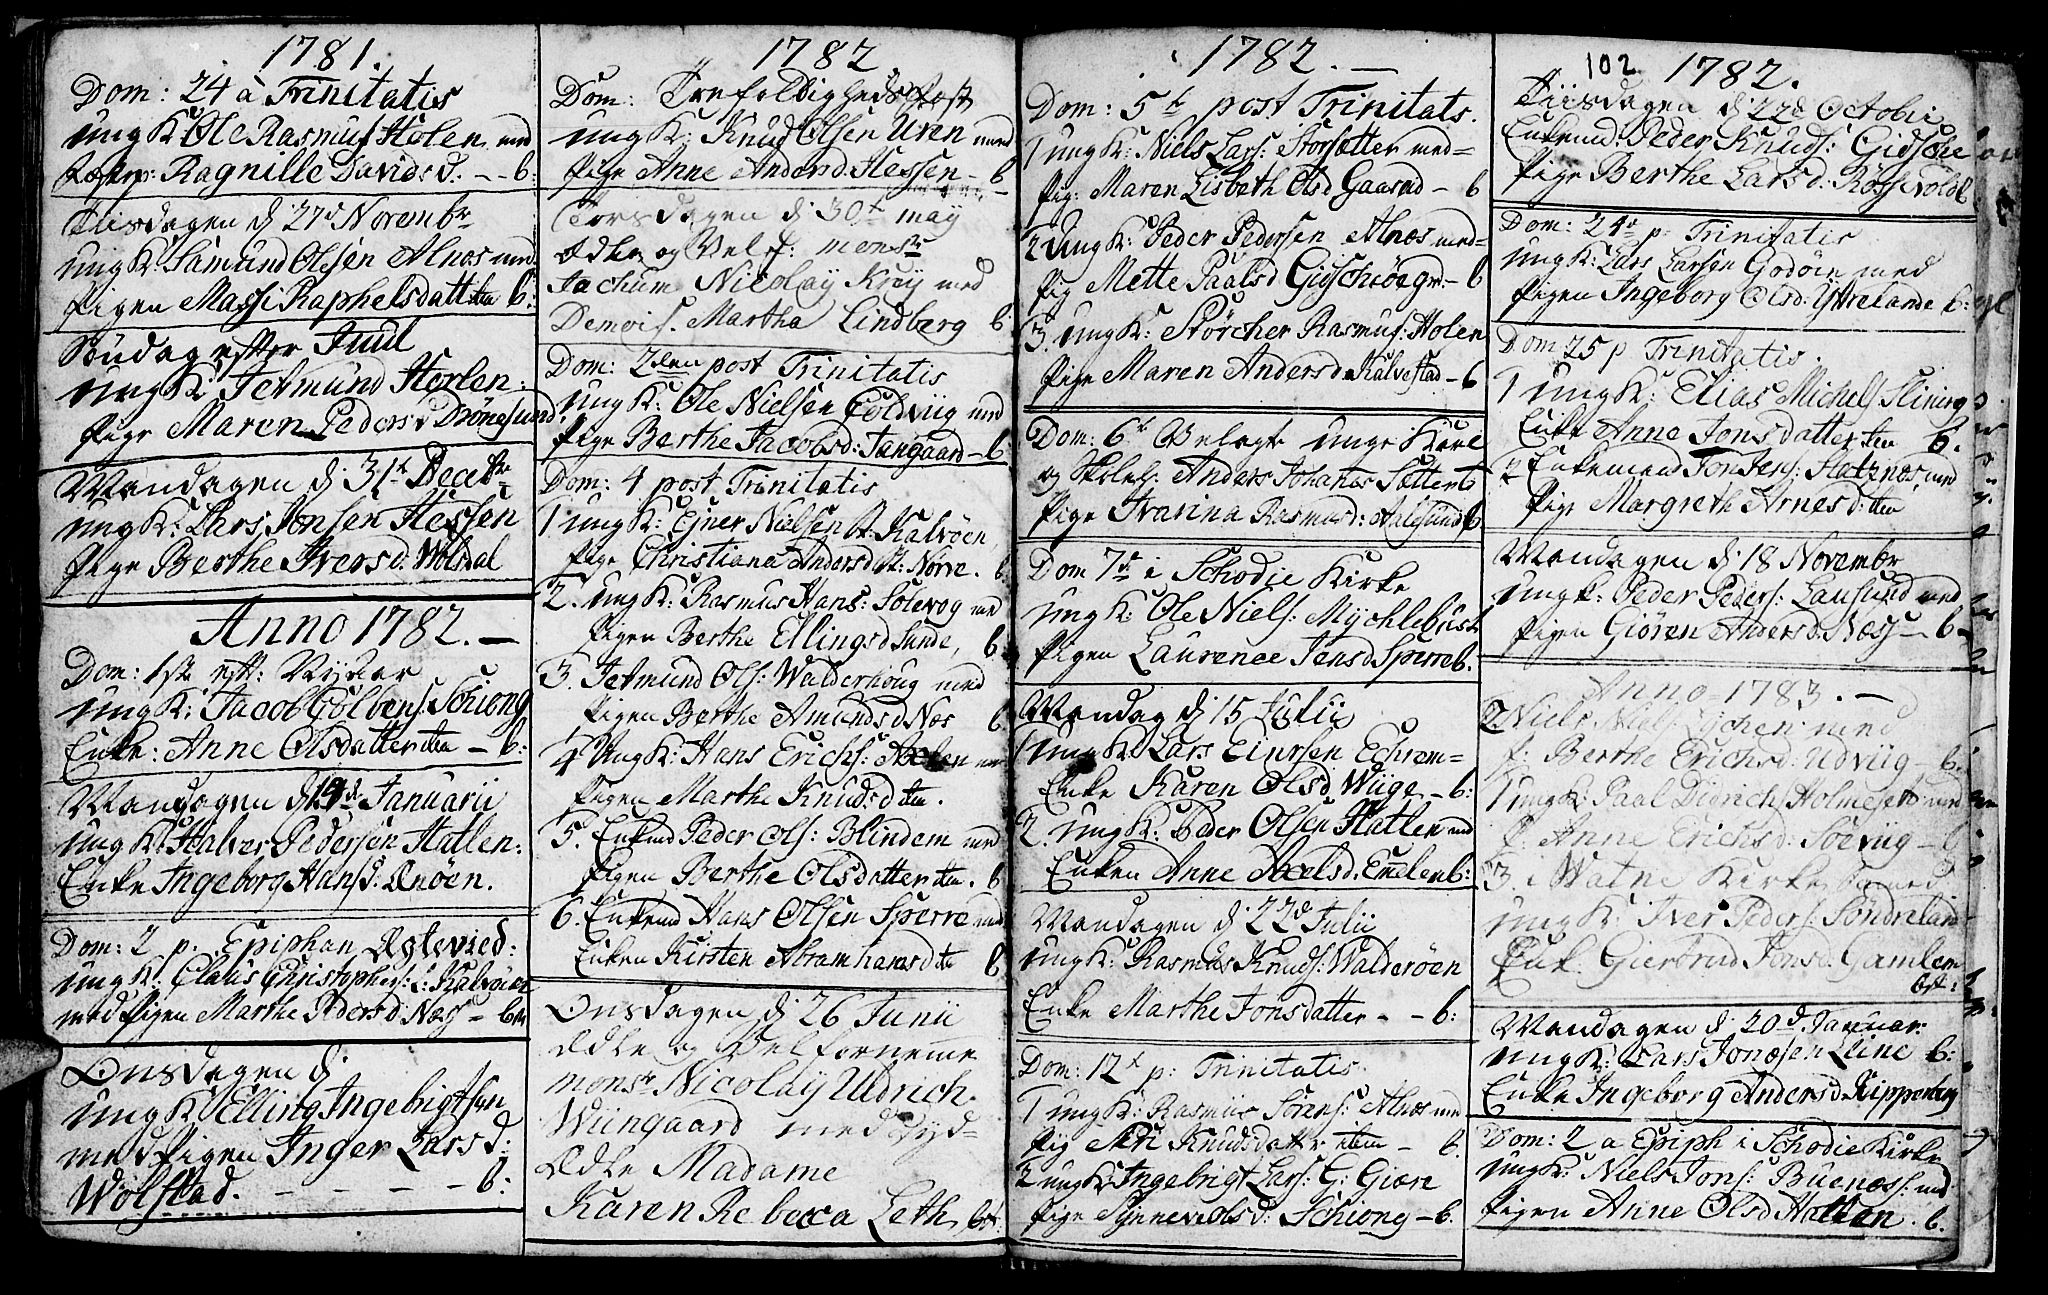 1781.
Dom: 24 à Trinitatis
ungK: Ole Rasmus: Holen med
Ragnille Davids d. - - b:
Tiisdagen d 27d Novembr
ungK: Samund Olesen Alnæs med
Pigen Massi Raphelsdatt ibm b:
Søndag efter Juul
ungK: Jetmund Horlen:
Pige Maren Peders d Drönesund
Mandagen d 31t Decebr
ungK: Lars Jonsen Hessen
Pige Berthe Ivers d: Wolsdal
Anno 1782. —
Dom: 1ste efft: Nyaar
ungK: Jacob Schiong
Enke: Anne Olsdatter ibm - b:
Mandagen d 14de Januarii
ungK: Halver Pedersen Hatlen:
Enke Ingeborg Hans d: Ønöen.
Dom: 2 p. Epiphan Ægtevied:
ungK: Claus Christophers: L: Kalvöen
med Pigen Marthe Peders d: Næss - b:
Onsdagen d
ungK Elling Ingebrigtsen
med Pigen Inger Lars d:
Wolstad. - - - - b:
1782
Dom: Trefoldigheds Fest
ungK: Knud Olsen Uren med
Pige Anne Anders d Hessen - b
Torsdagen d 30t may
Ædle og Velf: monsr
Jochum Nicolay Krøy med
Demois. Martha Lindberg b:
Dom: 2den post Trinitatis
ungK: Ole Nielsen Goldviig med
Pige Berthe Jacobs d: Tangaard - b
Dom: 4 post Trinitatis
1 ungK: Ejner Nielsen St. Kalvöen
Pige Christiana Anders d St: Nörve. b
2. ungK: Rasmus Hans: Solevog med
Pigen Berthe Ellings d Sunde, b
3. Jetmund Ols: Walderhoug med
Pigen Berthe Amunds d Næs b
4 ungK: Hans Erichs: med
Pigen Marthe Knuds d ibm.
5. Enkmd Peder Ols: Blindem med
Pigen Berthe Olsdatter ibm. b
6. Enkemd Hans Olsen Sperre med
Enken Kirsten Abramhams d ib b
Onsdagen d 26 Junii
Ædle og Velfornemme
monsr Nicolay Uldrich
Wiingaard med Dyd=
Ædle Madame
Karen Rebecca Leth, bt.
1782. —
Dom: 5te post Trinitats.
1 ungK: Niels Lars: Storsætter med=
Pig: Maren Lisbeth Ols d Gaarad - b
2 ungK: Peder Pedersen Alnæs med=
Pig Mette Paals d - b
3. ungK: Störcher Rasmus: Holen
Pige Maren Anders d Kalvestad - b
Dom: 6te unge Karl
og Skoleh: Anders Johanes Sætter b
Pige Ivarina Rasmus d: Aalesund b
Dom 7de i Schodie Kirke
ungK: Ole Niels: Mychlebust
Pigen Laurence Jens d Sperre b.
Mandag d 15 Julii
1 ungK: Lars Einrsen Echrem=
Enke Karen Ols d Wiige - b:
2. ungK: Peder Olsen Hatlen med
Enken Anne Axels d. Emelen b:
Mandagen d 22d Julii
ungK: Rasmus Knuds: Walderöen
Enke Marthe Jonsdatter - - b:
Dom: 12te p: Trinitatis
1 ungK: Rasmus Sörens: Alnæs med
Pig Siri Knudsdatter ibm - b.
2 ungK: Ingebrigt Lars: G: Giære
Pige Synneve Ols d: Schiong - b.
102 1782.
Tiisdagen d 22d Octobr
Enkemd: Peder Knuds: Gidske
Pige Berthe Lars d: Rossevold b
Dom: 24de p. Trinitatis
ungK: Lars Larsen Godöen med
Pigen Ingeborg Ols d: Ytreland b:
Dom 25 p Trinitatis.
1 ungK: Elias Michels Slining
Enke Anne Jonsdatter ibm b.
2 Enkemand Jon Jens: Hatznæs med
Pige Margreth Arnes d: ibm
Mandagen d 18 Novembr
ungK: Peder Peders: Lausund med
Pigen Giören Anders d: Næss - b
Anno 1783. —
2. Niels Niels: med
P: Berthe Erichs d: Udviig - b:
1 ungK: Paal Didrichs Holmeset med
P. Anne Erichs d: Soeviig - b
3. i Watne Kirke
ungK: Iver Peders: Söndreland
Enk. Giertrud Jons d: Gamlem
bst:
Mandagen d 20d Januar:
ungK: Lars Jonæsen Line b:
Enke Ingeborg Anders d Kipperberg
Dom: 2 a Epiph i Schodie Kirke
ungK: Niels Jons: Buenæss: med
Pigen Anne Ols d Hatlen. b.